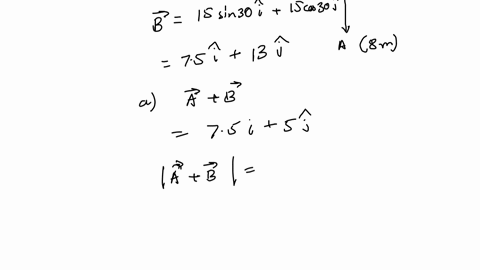 B⃗ = 15 sin30 î + 15 cos30 ĵ
= 7.5 î + 13 ĵ
A (8m)
a) A⃗ + B⃗
= 7.5 i + 5 ĵ
|A⃗ + B⃗| =